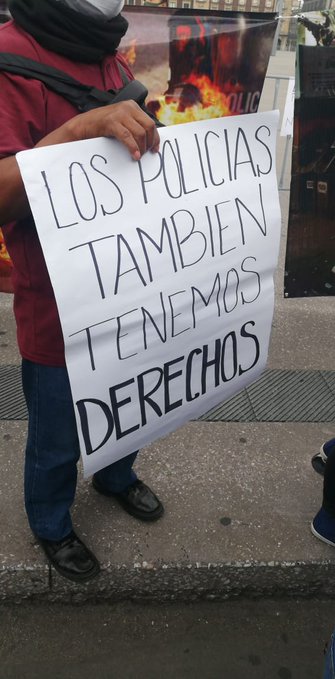 LOS POLICIAS
TAMBIEN
TENEMOS
DERECHOS